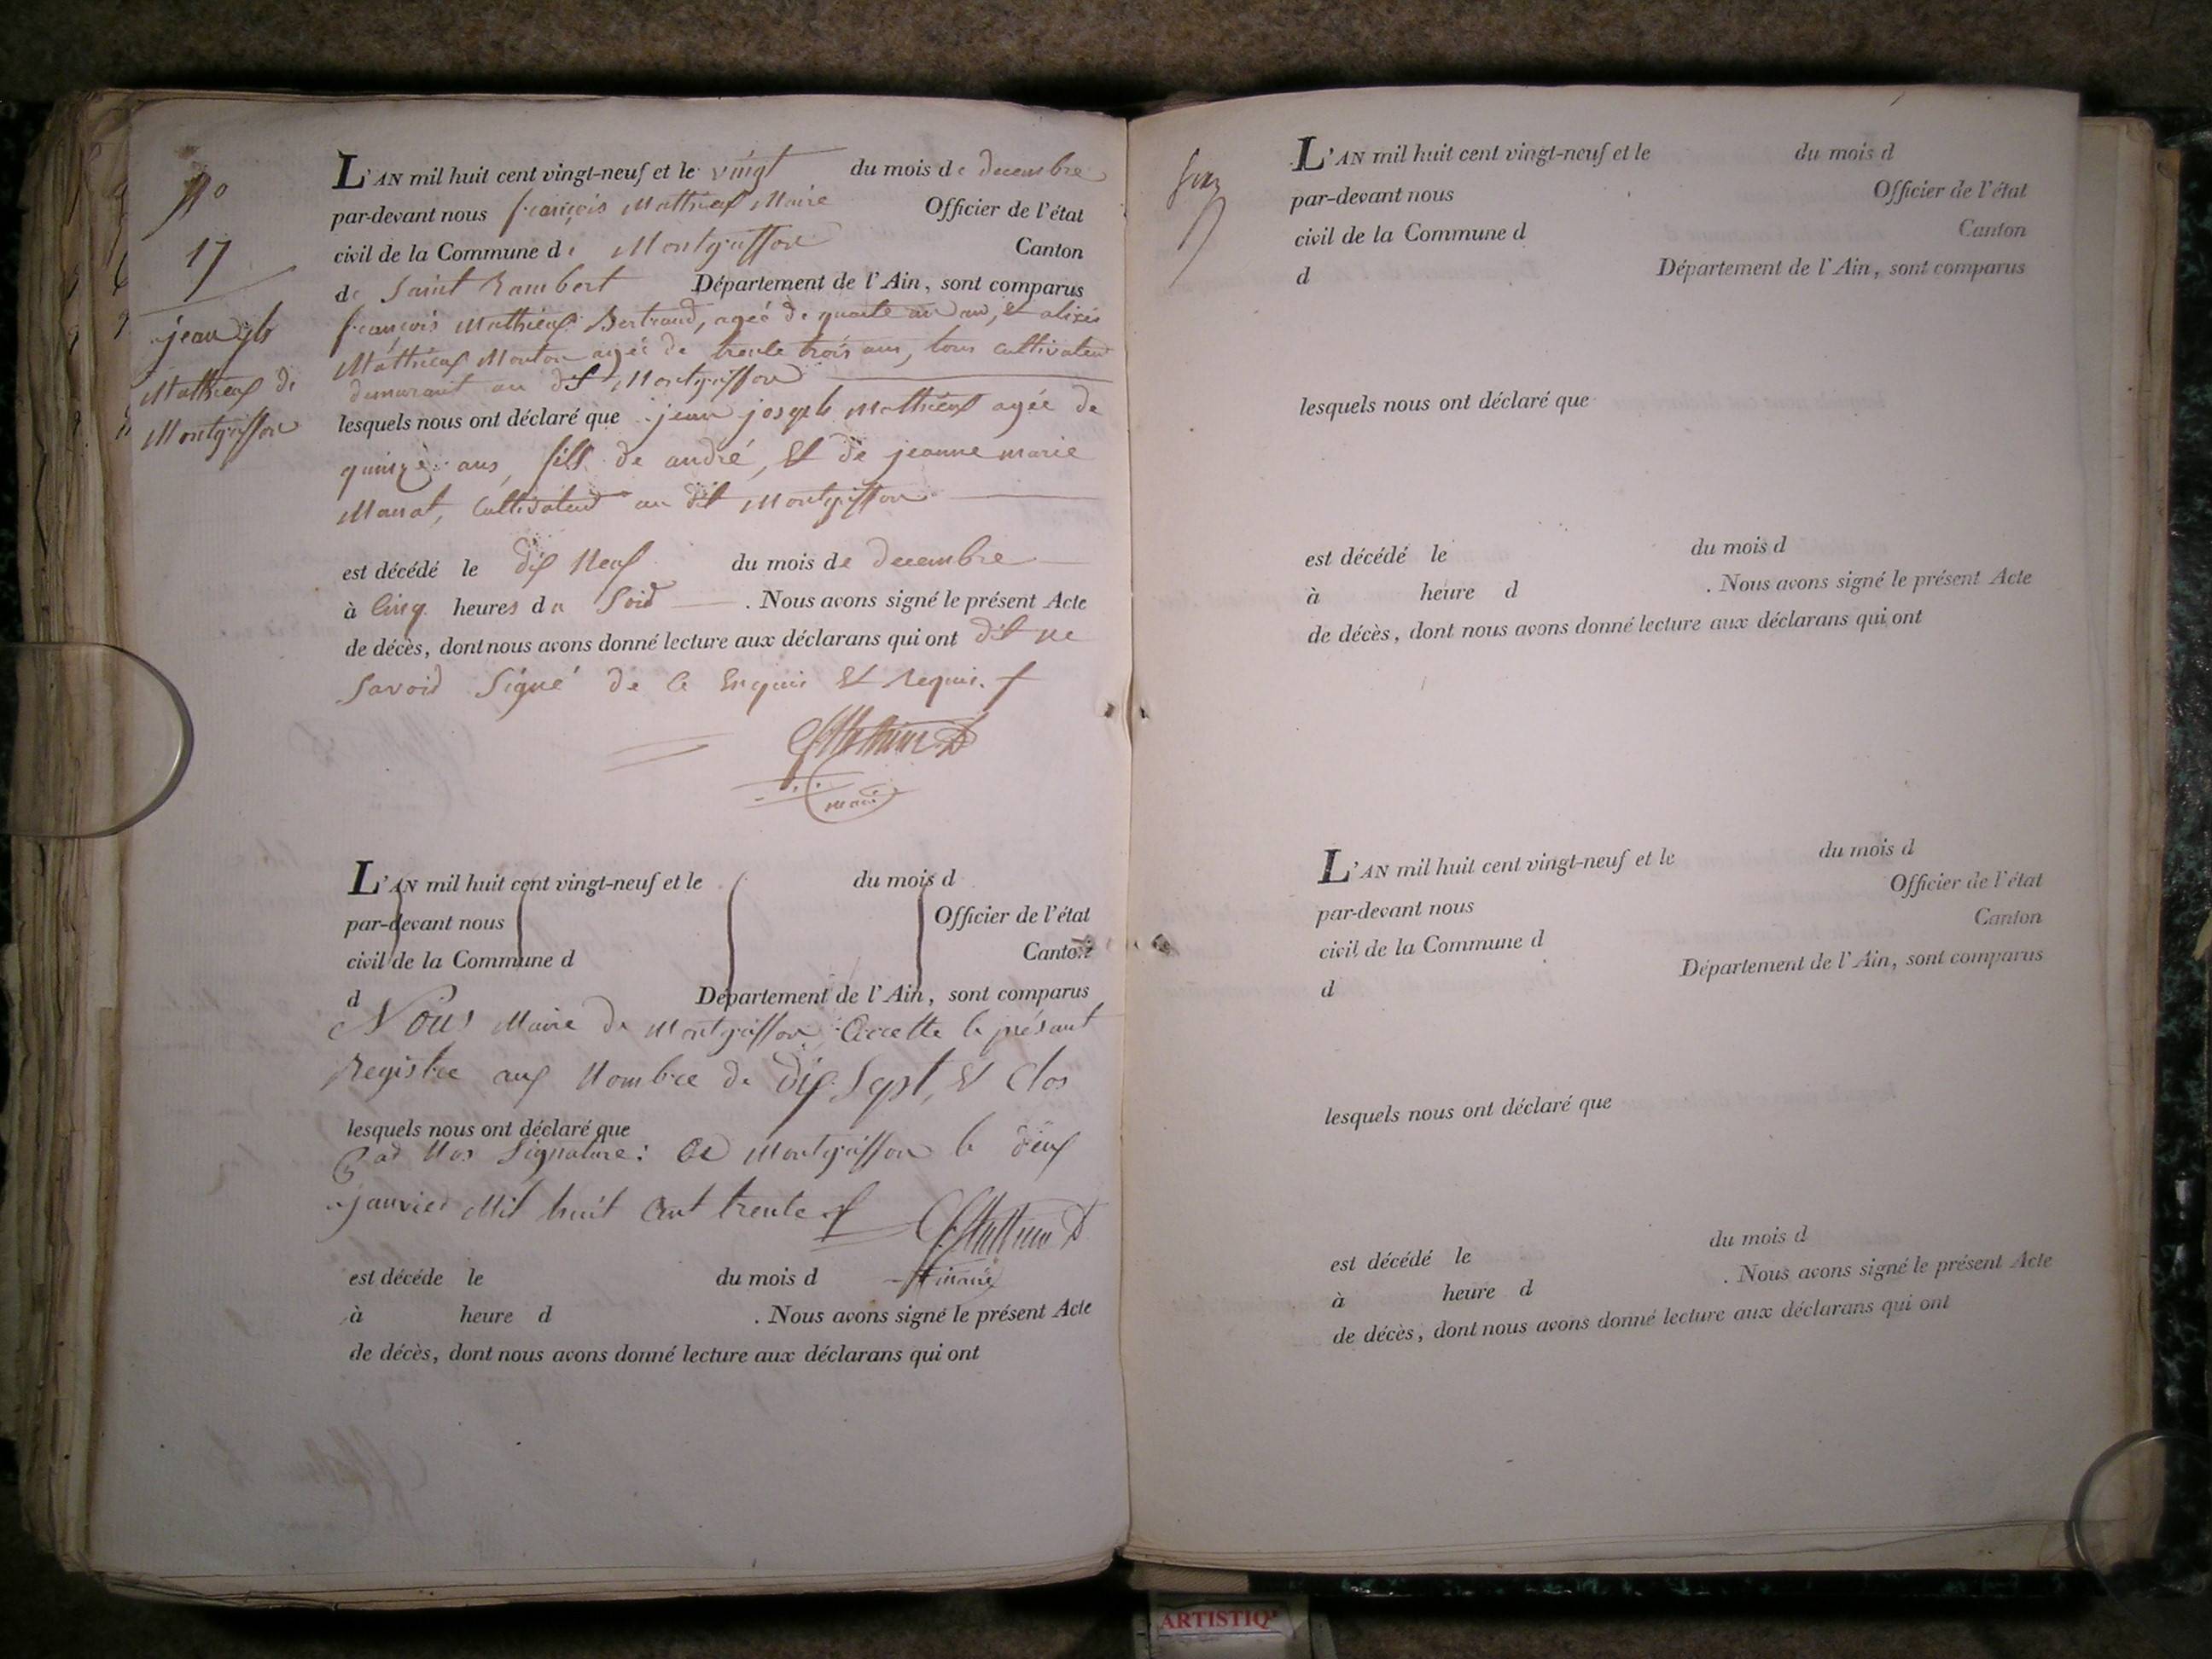 N°
17
jean jph
Mathieux de
Montgriffon
L'AN mil huit cent vingt-neuf et le vingt du mois de decembre
par-devant nous françois Mathieux Maire Officier de l'état
civil de la Commune de Montgriffon Canton
de Saint Rambert Département de l'Ain, sont comparus
françois Mathieux Bertrand, agée de quarte un an, et alixis
Mathieux Monton agée de trente trois ans, tous cultivateur
demurant au dit Montgriffon
lesquels nous ont déclaré que jean joseph Mathieux agée de
quinze ans, fils de andré, et de jeanne marie
Manat, Cultivateur au dit Montgriffon
est décédé le dix Neuf du mois de decembre
à Cinq heures du Soir . Nous avons signé le présent Acte
de décès, dont nous avons donné lecture aux déclarans qui ont dit ne
Savoir Signé de ce Enquis et Requis.
maire
L'AN mil huit cent vingt-neuf et le du mois d
par-devant nous Officier de l'état
civil de la Commune d Canton
d Département de l'Ain, sont comparus
Nous Maire de Montgriffon, Accette le présant
Registre aux Nombre de dix Sept, et Clos
lesquels nous ont déclaré que
par Nos Signature: a Montgriffon le deux
janvier Mil huit Cent trente
est décédé le du mois d maire
à heure d . Nous avons signé le présent Acte
de décès, dont nous avons donné lecture aux déclarans qui ont
L'AN mil huit cent vingt-neuf et le du mois d
par-devant nous Officier de l'état
civil de la Commune d Canton
d Département de l'Ain, sont comparus
lesquels nous ont déclaré que
est décédé le du mois d
à heure d . Nous avons signé le présent Acte
de décès, dont nous avons donné lecture aux déclarans qui ont
L'AN mil huit cent vingt-neuf et le du mois d
par-devant nous Officier de l'état
civil de la Commune d Canton
d Département de l'Ain, sont comparus
lesquels nous ont déclaré que
est décédé le du mois d
à heure d . Nous avons signé le présent Acte
de décès, dont nous avons donné lecture aux déclarans qui ont
ARTISTIQ'